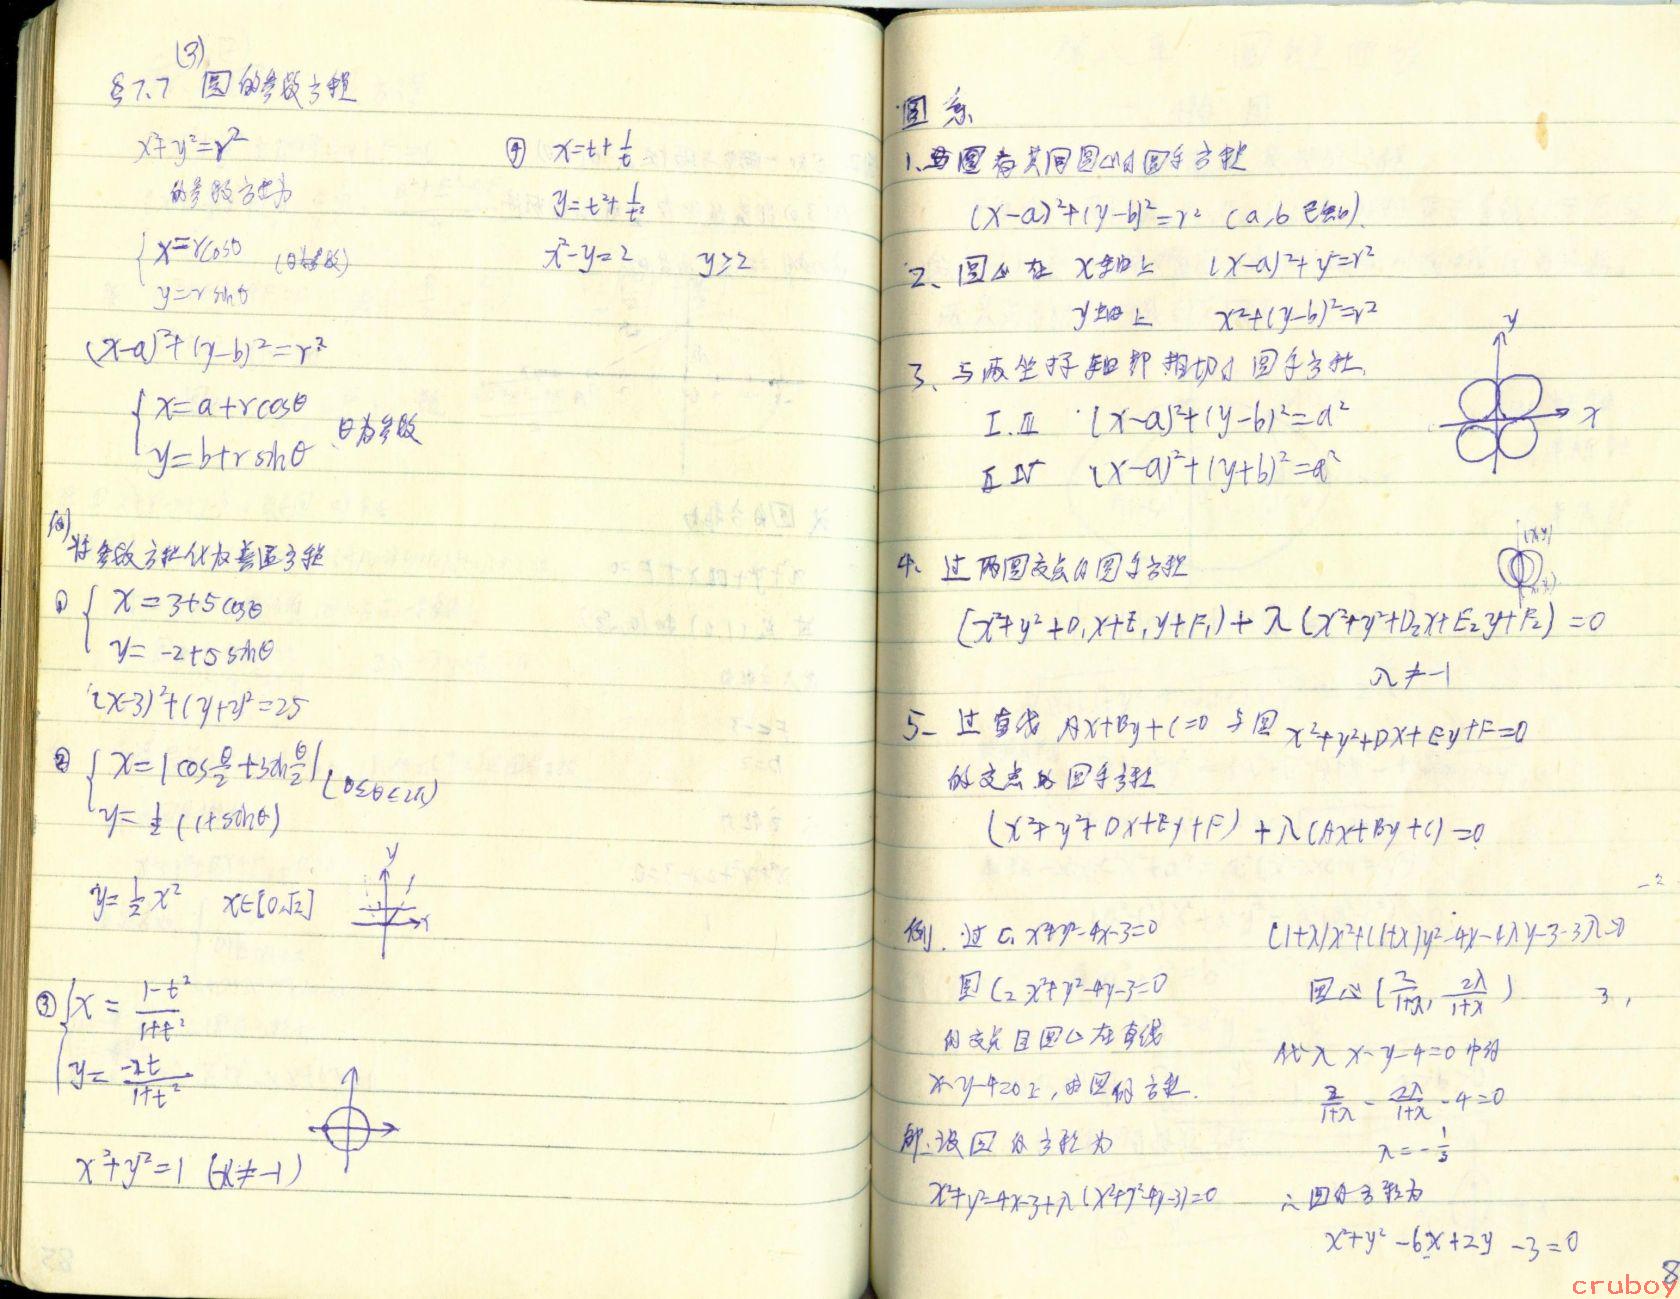 (3)
§7.7 圆的参数方程
x²+y²=r²
的参数方程为
x=rcosθ (θ为参数)
y=rsinθ
(x-a)²+(y-b)²=r²
x=a+rcosθ
y=b+rsinθ θ为参数
例
将参数方程化为普通方程
① x=3+5cosθ
y=-2+5sinθ
(x-3)²+(y+2)²=25
② x=|cos θ/2+sin θ/2| (0≤θ≤2π)
y=1/2(1+sinθ)
y=1/2x² x∈[0,√2]
y
x
③ x=(1-t²)/(1+t²)
y=-2t/(1+t²)
x²+y²=1 (x≠-1)
④ x=t+1/t
y=t²+1/t²
x²-y=2 y≥2
圆系
1、与圆有共同圆心的圆系方程
(x-a)²+(y-b)²=r² (a,b已知).
2、圆心在 x轴上 (x-a)²+y²=r²
y轴上 x²+(y-b)²=r²
3、与两坐标轴都相切的圆系方程.
I.Ⅲ (x-a)²+(y-b)²=a²
Ⅱ Ⅳ (x-a)²+(y+b)²=a²
y
x
4. 过两圆交点的圆系方程
(x²+y²+D₁x+E₁y+F₁)+λ(x²+y²+D₂x+E₂y+F₂)=0
λ≠-1
5- 过直线 Ax+By+C=0 与圆 x²+y²+Dx+Ey+F=0
的交点的圆系方程
(x²+y²+Dx+Ey+F)+λ(Ax+By+C)=0
例. 过C₁ x²+y²-4x-3=0
圆C₂ x²+y²-4y-3=0
的交点且圆心在直线
x-y-4=0上,求圆的方程.
解.设圆的方程为
x²+y²-4x-3+λ(x²+y²-4y-3)=0
(1+λ)x²+(1+λ)y²-4x-4λy-3-3λ=0
圆心(2/(1+λ), 2λ/(1+λ))
代入 x-y-4=0 中得
2/(1+λ) - 2λ/(1+λ) -4=0
λ=-1/3
∴圆的方程为
x²+y²-6x+2y-3=0
8
cruboy